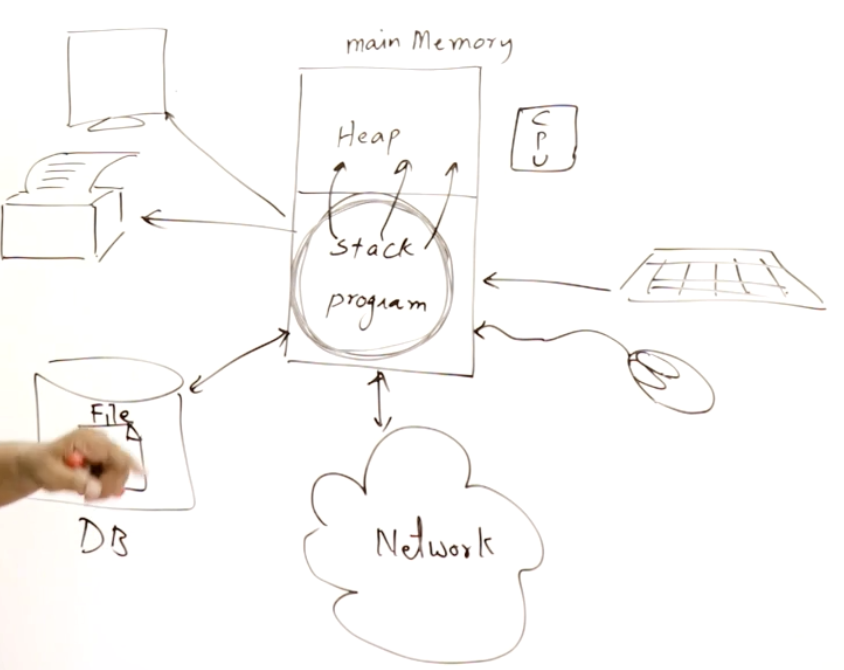 main Memory
Heap
CPU
Stack
program
File
DB
Network